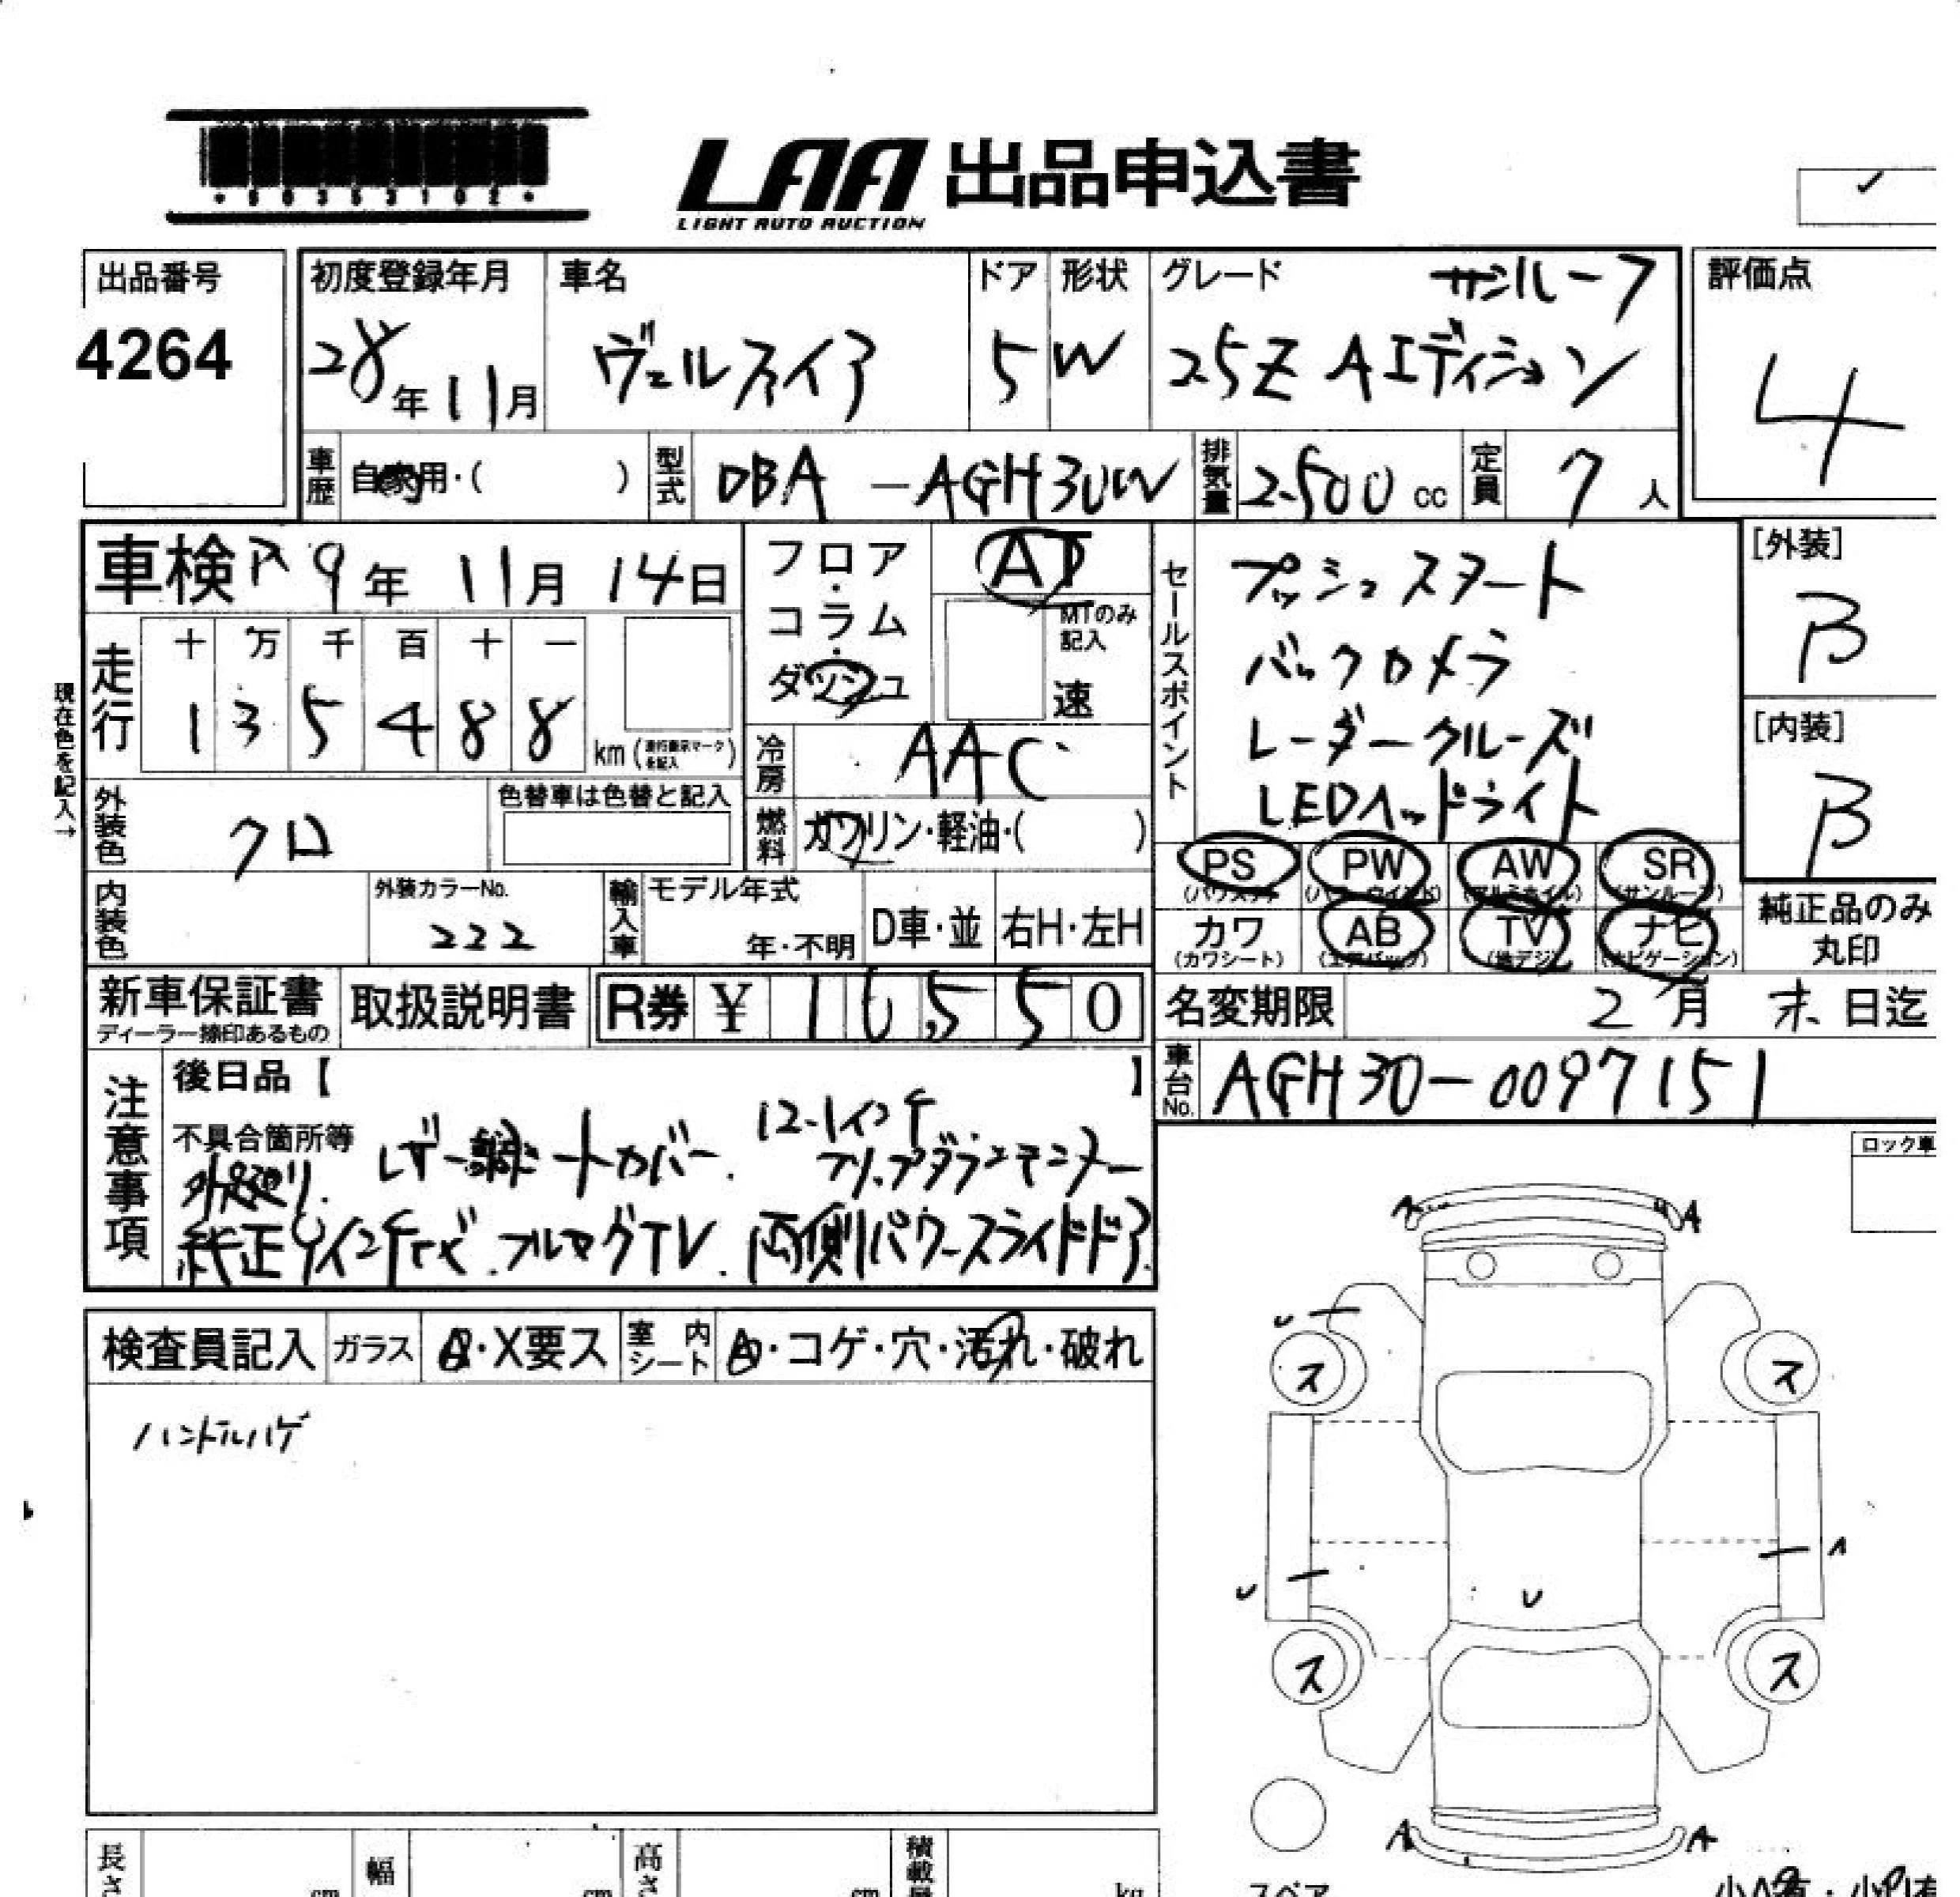 LAA 出品申込書
LIGHT AUTO AUCTION
出品番号
4264
初度登録年月
28年11月
車名
ヴェルファイア
ドア
5
形状
W
グレード
サンルーフ
25Z Aエディション
評価点
4
車歴
自家用・( )
型式
DBA-AGH30W
排気量
2500cc
定員
7人
車検 R9年11月14日
フロア・コラム・ダッシュ
AT
MTのみ記入
速
走行
十 万 千 百 十 一
1 3 5 4 8 8
km (走行表示マークを記入)
現在色を記入→
外装色
クロ
色替車は色替と記入
冷房
AAC
燃料
ガソリン・軽油・( )
内装色
外装カラーNo.
222
輸入車
モデル年式
年・不明
D車・並
右H・左H
セールスポイント
プッシュスタート
バックカメラ
レーダークルーズ
LEDヘッドライト
[外装]
B
[内装]
B
PS (パワステ)
PW (パワーウインド)
AW (アルミホイル)
SR (サンルーフ)
カワ (カワシート)
AB (エアバック)
TV (地デジ)
ナビ (ナビゲーション)
純正品のみ丸印
新車保証書
ディーラー捺印あるもの
取扱説明書
R券 ¥ 16,550
名変期限 2月末日迄
車台No.
AGH30-0097151
注意事項
後日品【 】
不具合箇所等
レザー調シートカバー. 12.1インチ
フリップダウンモニター
純正9インチナビ.フルセグTV.両側パワースライドドア.
検査員記入
ガラス
A・X要ス
室内シート
A・コゲ・穴・汚れ・破れ
ハンドルハゲ
ロック車
A A
U
ス ス
U U A
ス ス
A A
スペア
長さ cm
幅 cm
高さ cm
積載量 kg